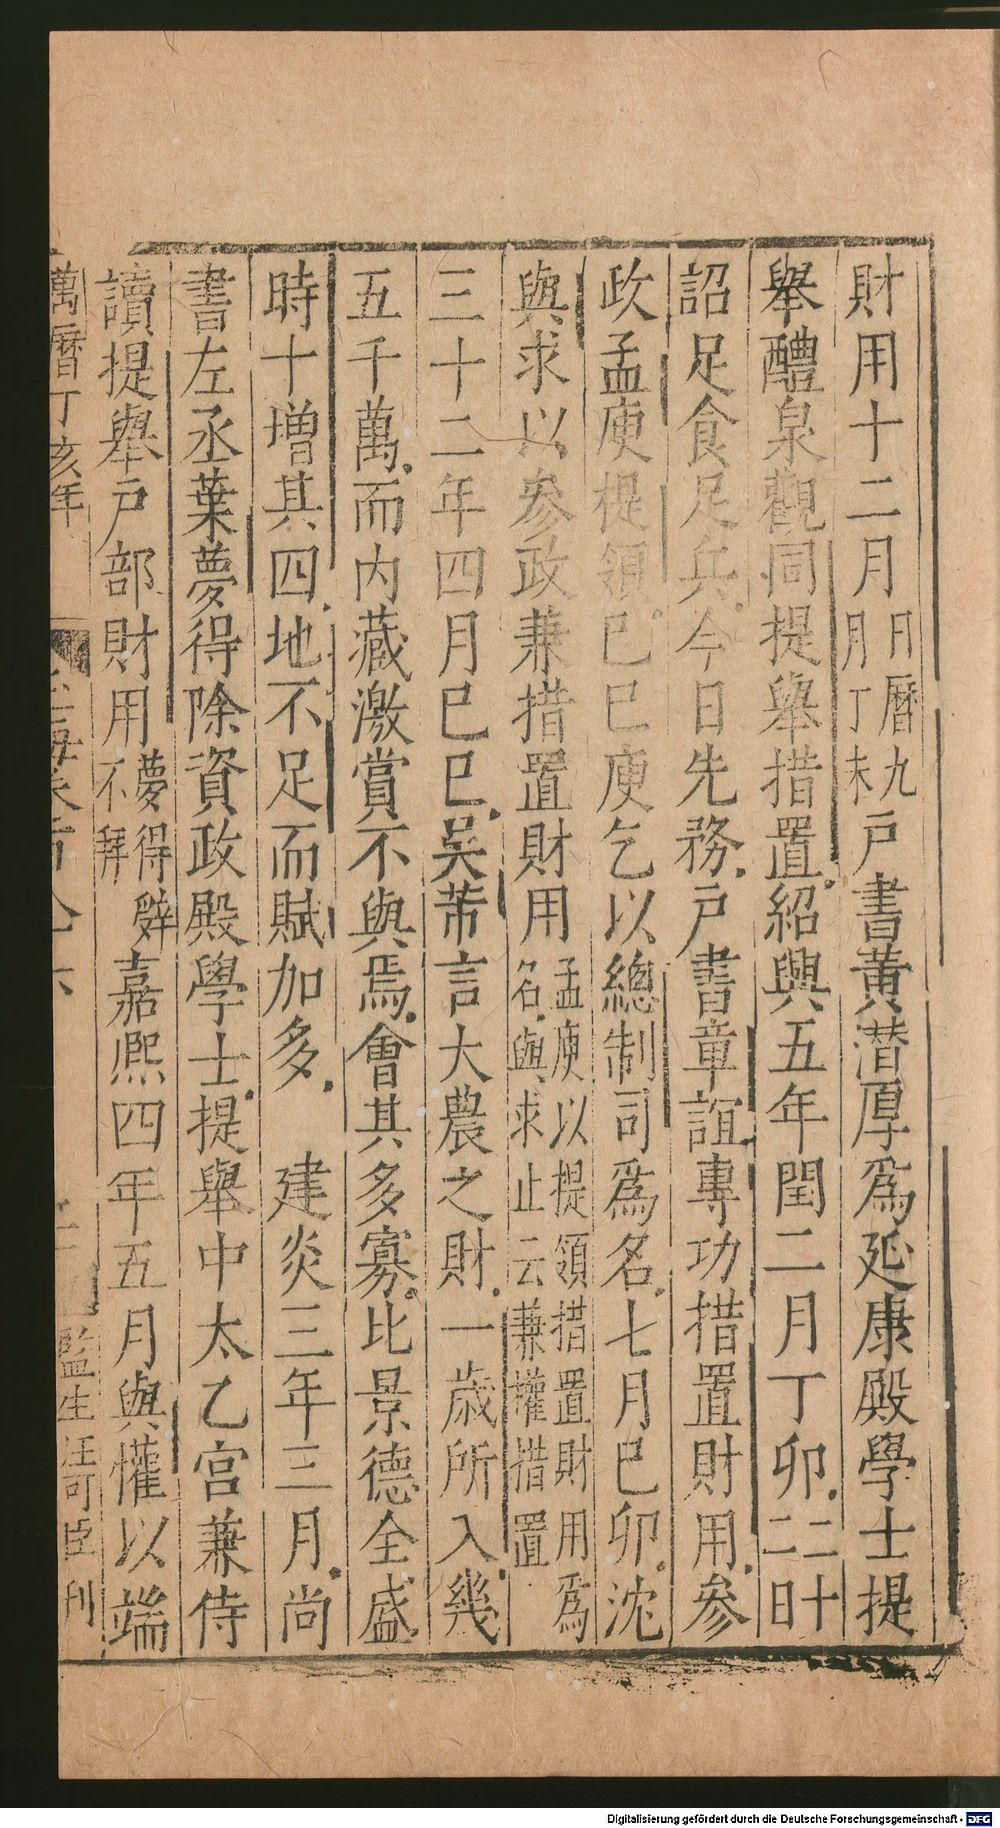 財用十二月日曆九月丁未戸書黄潛厚爲延康殿學士提
舉醴泉觀同提舉措置紹興五年閏二月丁卯二十二日
詔足食足兵今日先務戸書章誼專功措置財用參
政孟庾提領已巳庾乞以總制司爲名七月巳卯沈
與求以參政兼措置財用孟庾以提領措置財用爲名與求止云兼權措置
三十二年四月巳巳吴芾言大農之財一歳所入幾
五千萬而内藏激賞不與焉會其多寡比景德全盛
時十增其四地不足而賦加多 建炎三年三月尚
書左丞葉夢得除資政殿學士提舉中太乙宫兼侍
讀提舉戸部財用夢得辭不拜嘉熙四年五月與懽以端
萬曆丁亥年 六 監生汪可臣刊
Digitalisierung gefördert durch die Deutsche Forschungsgemeinschaft - DFG